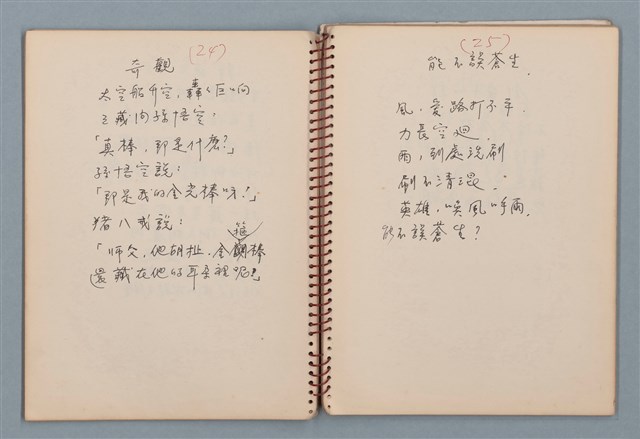 (24)
奇觀
太空船升空,轟轟巨响
三藏问孫悟空:
「真棒,那是什麼?」
孫悟空說:
「那是我的金光棒呀!」
猪八戒說:
「师父,他胡扯,金箍棒
還藏在他的耳朵裡呢!」
(25)
能不誤蒼生.
風,愛路打不平.
力長空迴.
雨,到處洗刷
刷不清混.
英雄,喚風呼雨.
能不誤蒼生?